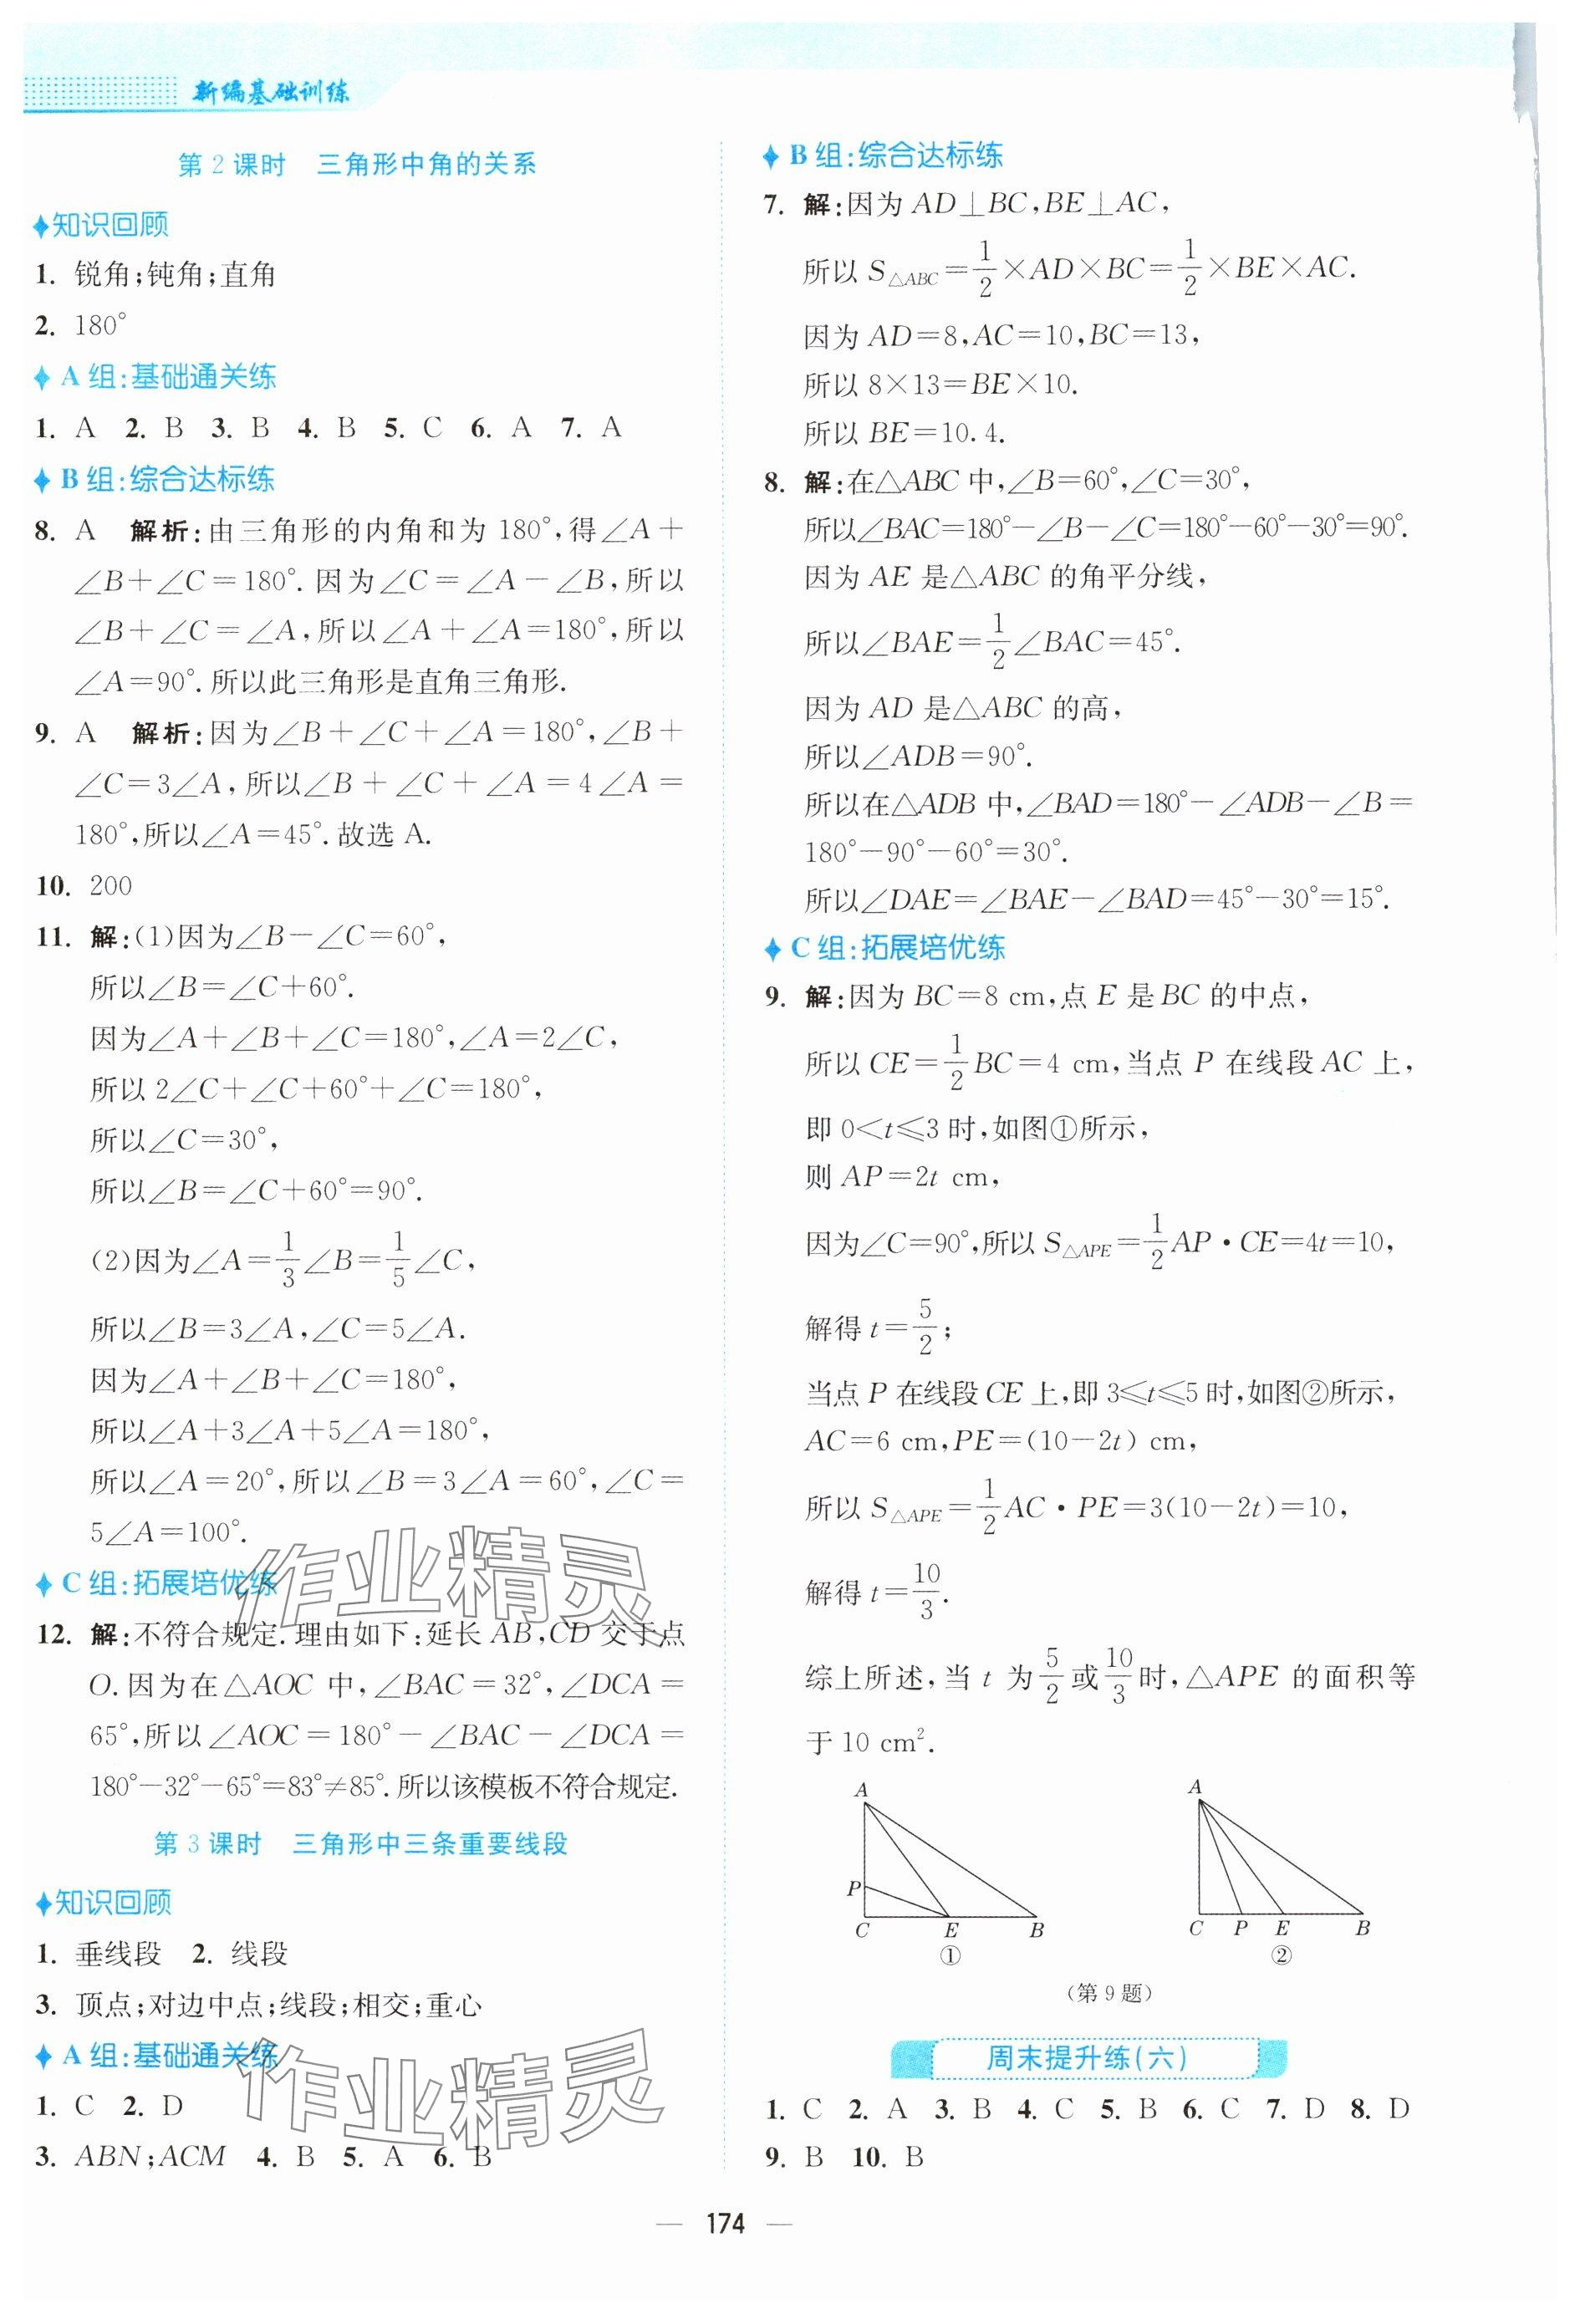 新编基础训练
第2课时 三角形中角的关系
知识回顾
1. 锐角;钝角;直角
2. 180°
A组:基础通关练
1. A 2. B 3. B 4. B 5. C 6. A 7. A
B组:综合达标练
8. A 解析:由三角形的内角和为180°,得∠A+
∠B+∠C=180°.因为∠C=∠A-∠B,所以
∠B+∠C=∠A,所以∠A+∠A=180°,所以
∠A=90°.所以此三角形是直角三角形.
9. A 解析:因为∠B+∠C+∠A=180°,∠B+
∠C=3∠A,所以∠B+∠C+∠A=4∠A=
180°,所以∠A=45°.故选A.
10. 200
11. 解:(1)因为∠B-∠C=60°,
所以∠B=∠C+60°.
因为∠A+∠B+∠C=180°,∠A=2∠C,
所以2∠C+∠C+60°+∠C=180°,
所以∠C=30°,
所以∠B=∠C+60°=90°.
(2)因为∠A=1/3∠B=1/5∠C,
所以∠B=3∠A,∠C=5∠A.
因为∠A+∠B+∠C=180°,
所以∠A+3∠A+5∠A=180°,
所以∠A=20°,所以∠B=3∠A=60°,∠C=
5∠A=100°.
C组:拓展培优练
12. 解:不符合规定.理由如下:延长AB,CD交于点
O.因为在△AOC中,∠BAC=32°,∠DCA=
65°,所以∠AOC=180°-∠BAC-∠DCA=
180°-32°-65°=83°≠85°.所以该模板不符合规定.
作业精灵
第3课时 三角形中三条重要线段
知识回顾
1. 垂线段 2. 线段
3. 顶点;对边中点;线段;相交;重心
A组:基础通关练
1. C 2. D
3. ABN;ACM 4. B 5. A 6. B
作业精灵
B组:综合达标练
7. 解:因为AD⊥BC,BE⊥AC,
所以S△ABC=1/2×AD×BC=1/2×BE×AC.
因为AD=8,AC=10,BC=13,
所以8×13=BE×10.
所以BE=10.4.
8. 解:在△ABC中,∠B=60°,∠C=30°,
所以∠BAC=180°-∠B-∠C=180°-60°-30°=90°.
因为AE是△ABC的角平分线,
所以∠BAE=1/2∠BAC=45°.
因为AD是△ABC的高,
所以∠ADB=90°.
所以在△ADB中,∠BAD=180°-∠ADB-∠B=
180°-90°-60°=30°.
所以∠DAE=∠BAE-∠BAD=45°-30°=15°.
C组:拓展培优练
9. 解:因为BC=8 cm,点E是BC的中点,
所以CE=1/2BC=4 cm,当点P在线段AC上,
即0<t≤3时,如图①所示,
则AP=2t cm,
因为∠C=90°,所以S△APE=1/2AP·CE=4t=10,
解得t=5/2;
当点P在线段CE上,即3≤t≤5时,如图②所示,
AC=6 cm,PE=(10-2t) cm,
所以S△APE=1/2AC·PE=3(10-2t)=10,
解得t=10/3.
综上所述,当t为5/2或10/3时,△APE的面积等
于10 cm².
A
P
C E B
①
A
C P E B
②
(第9题)
周末提升练(六)
1. C 2. A 3. B 4. C 5. B 6. C 7. D 8. D
9. B 10. B
174